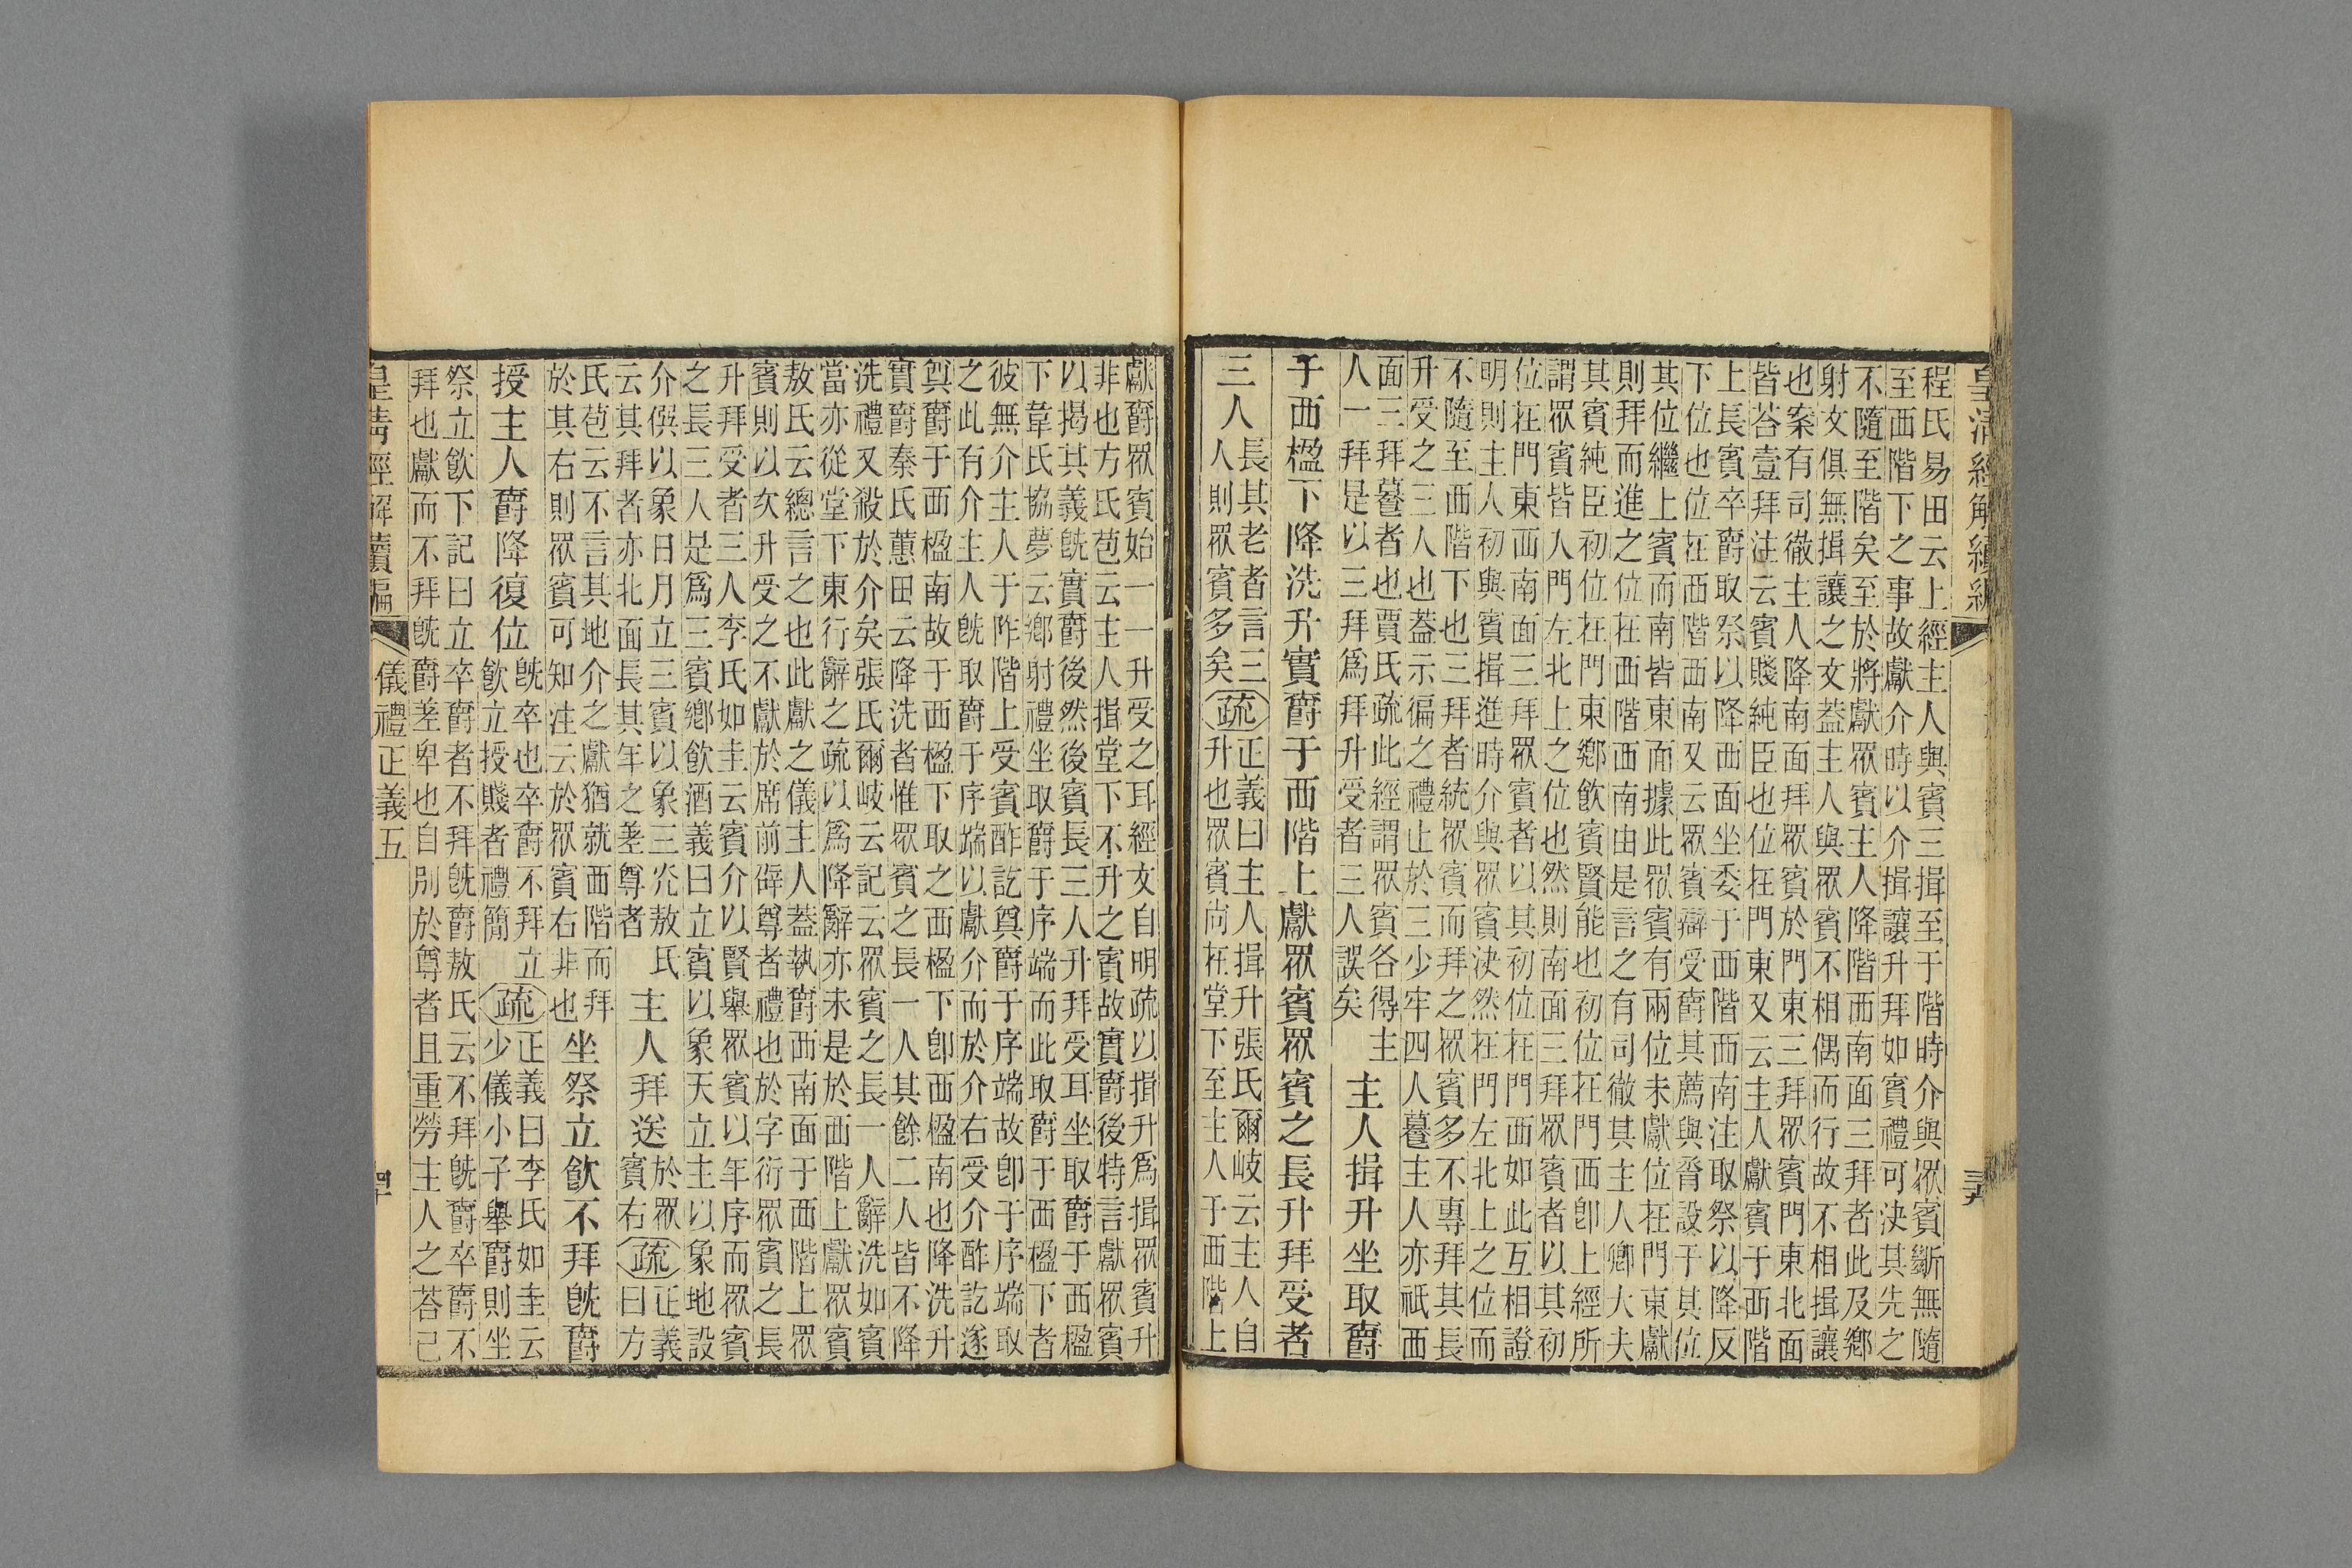 皇清經解續編
程氏易田云上經主人與賓三揖至于階時介與眾賓斷無隨
至西階下之事故獻介時以介揖讓升拜如賓禮可決其先之
不隨至階矣至於將獻眾賓主人降階西南面三拜者此及鄉
射文俱無揖讓之文葢主人與眾賓不相偶而行故不相揖讓
也案有司徹主人降南面拜眾賓於門東三拜眾賓門東北面
皆荅壹拜注云賓賤純臣也位在門東又云主人獻賓于西階
上長賓卒爵取祭以降西面坐委于西階西南注取祭以降反
下位也位在西階西南又云眾賓辯受爵其薦與脀設于其位
其位繼上賓而南皆東面據此眾賓有兩位未獻位在門東獻
則拜而進之位在西階西南由是言之有司徹其主人卿大夫
其賓純臣初位在門東鄉飲賓賢能也初位在門西卽上經所
謂眾賓皆入門左北上之位也然則南面三拜眾賓者以其初
位在門東西南面三拜眾賓者以其初位在門西如此互相證
明則主人初與賓揖進時介與眾賓決然在門左北上之位而
不隨至西階下也三拜者統眾賓而拜之眾賓多不專拜其長
升受之三人也葢示徧之禮止於三少牢四人䉵主人亦祇西
面三拜䉵者也賈氏疏此經謂眾賓各得主
人一拜是以三拜爲拜升受者三人誤矣
主人揖升坐取爵
于西楹下降洗升實爵于西階上獻眾賓眾賓之長升拜受者
三人
長其老者言三
人則眾賓多矣
疏
正義曰主人揖升張氏爾岐云主人自
升也眾賓尚在堂下至主人于西階上
獻爵眾賓始一一升受之耳經文自明疏以揖升爲揖眾賓升
非也方氏苞云主人揖堂下不升之賓故實爵後特言獻眾賓
以揭其義旣實爵後然後賓長三人升拜受耳坐取爵于西楹
下韋氏協夢云鄉射禮坐取爵于序端而此取爵于西楹下者
彼無介主人于阼階上受賓酢訖奠爵于序端故卽于序端取
之此有介主人旣取爵于序端以獻介而於介右受介酢訖遂
奠爵于西楹南故于西楹下取之西楹下卽西楹南也降洗升
實爵秦氏蕙田云降洗者惟眾賓之長一人其餘二人皆不降
洗禮又殺於介矣張氏爾岐云記云眾賓之長一人辭洗如賓
當亦從堂下東行辭之疏以爲降辭亦未是於西階上獻眾賓
敖氏云總言之也此獻之儀主人葢執爵西南面于西階上眾
賓則以次升受之不獻於席前辟尊者禮也於字衍眾賓之長
升拜受者三人李氏如圭云賓介以賢舉眾賓以年序而眾賓
之長三人是爲三賓鄉飲酒義曰立賓以象天立主以象地設
介僎以象日月立三賓以象三光敖氏
云其拜者亦北面長其年之差尊者
主人拜送
於眾
賓右
疏
正義
曰方
氏苞云不言其地介之獻猶就西階而拜
於其右則眾賓可知注云於眾賓右非也
坐祭立飲不拜旣爵
授主人爵降復位
旣卒也卒爵不拜立
飲立授賤者禮簡
疏
正義曰李氏如圭云
少儀小子舉爵則坐
祭立飲下記曰立卒爵者不拜旣爵敖氏云不拜旣爵卒爵不
拜也獻而不拜旣爵差卑也自別於尊者且重勞主人之荅己
皇淸經解續編
儀禮正義五